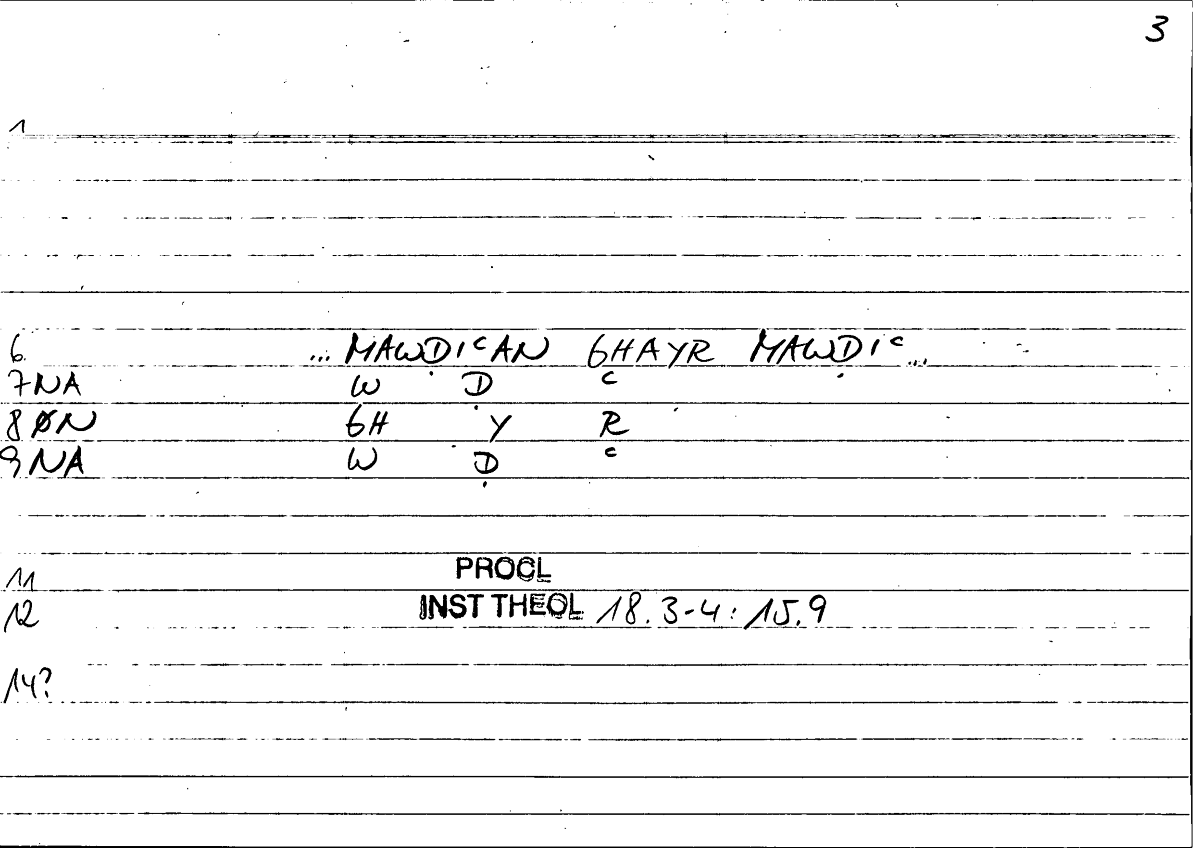 3
1
6. ... MAWḌIᶜAN GHAYR MAWḌIᶜ...
7NA W Ḍ ᶜ
8ØN GH Y R
9NA W Ḍ ᶜ
11 PROCL
12 INST THEOL 18.3-4: 15.9
14?